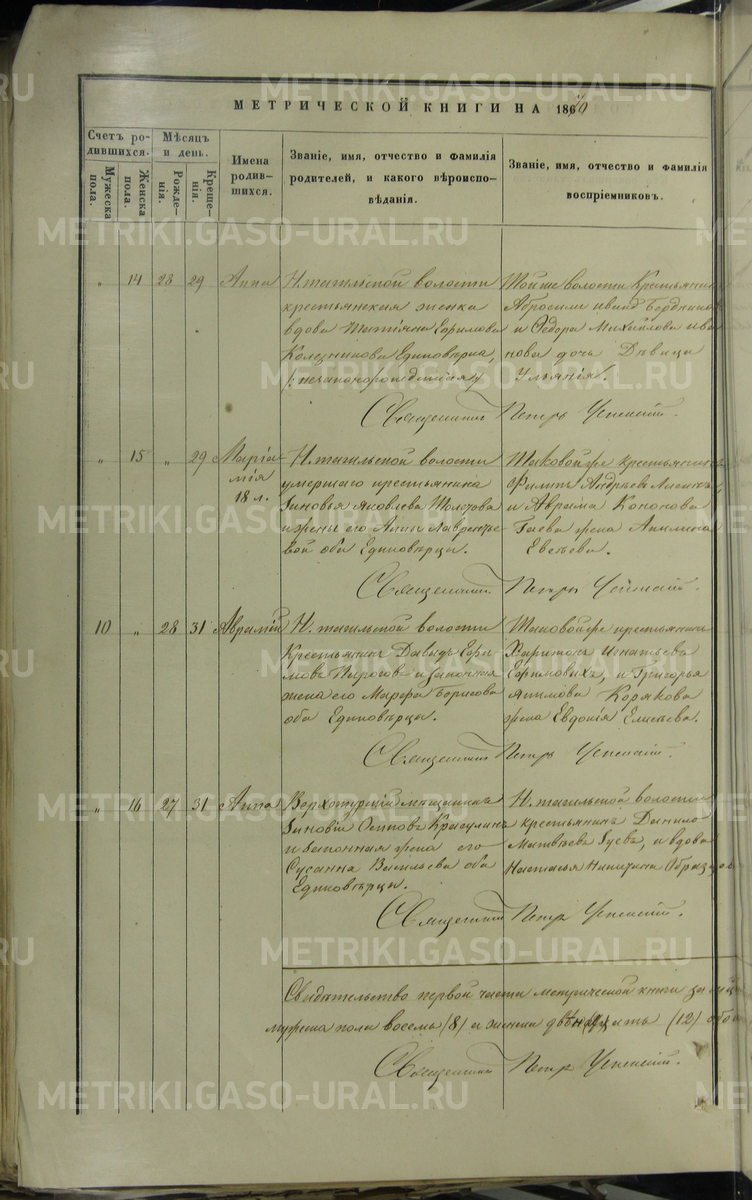 МЕТРИЧЕСКОЙ КНИГИ НА 1870
Счетъ ро-
дившихся.
Мужеска
пола.
Женска
пола.
Мѣсяцъ
и день.
Рожде-
нія.
Креще-
нія.
Имена
родив-
шихся.
Званіе, имя, отчество и фамилія
родителей, и какого вѣроиспо-
вѣданія.
Званіе, имя, отчество и фамилія
воспріемниковъ.
" 14 28 29 Анна
Н.тагильской волости
крестьянская женка
вдова Татіяна Ефимова
Колесникова Единовѣрка,
/:незаконорожденная/
Той же волости Крестьянинъ
Абросимъ
и Ѳедора Михайлова Ива
нова дочь Дѣвица
Ульянія.
Священникъ Петръ Успенскій.
" 15 " 29 Маріа-
мія
18 л.
Н.тагильской волости
умершаго крестьянина
Зиновья Яковлева Толстова
и жены его Анны Лавренть-
вой оба Единовѣрцы.
Таковой же крестьянинъ
Филипъ Андреевъ
и Аврама Кононова
Гаева жена Акилина
Евсѣева.
Священникъ Петръ Успенскій.
10 " 28 31 Аврамій
Н.тагильской волости
Крестьянинъ Давыдъ Ефи-
мовъ Пироговъ и законная
жена его Марѳа Борисова
оба Единовѣрцы.
Таковой же крестьянинъ
Харитонъ Игнатьевъ
Ефимовихъ, и Григорья
Якимова Корякова
жена Евдокія Елисѣева.
Священникъ Петръ Успенскій.
" 16 27 31 Анна
Верхотурскій мѣщанинъ
Зиновій Осиповъ Красулинъ
и законная жена его
Сусанна Васильева оба
Единовѣрцы.
Н.тагильской волости
крестьянинъ Данило
Матвѣевъ Гусевъ, и вдова
Настасья Никитина Образцова
Священникъ Петръ Успенскій.
Свидѣтельство первой части метрической книги за
мужеска пола восемь (8) а женска двѣнадцать (12) обо
Священникъ Петръ Успенскій.
METRIKI.GASO-URAL.RU